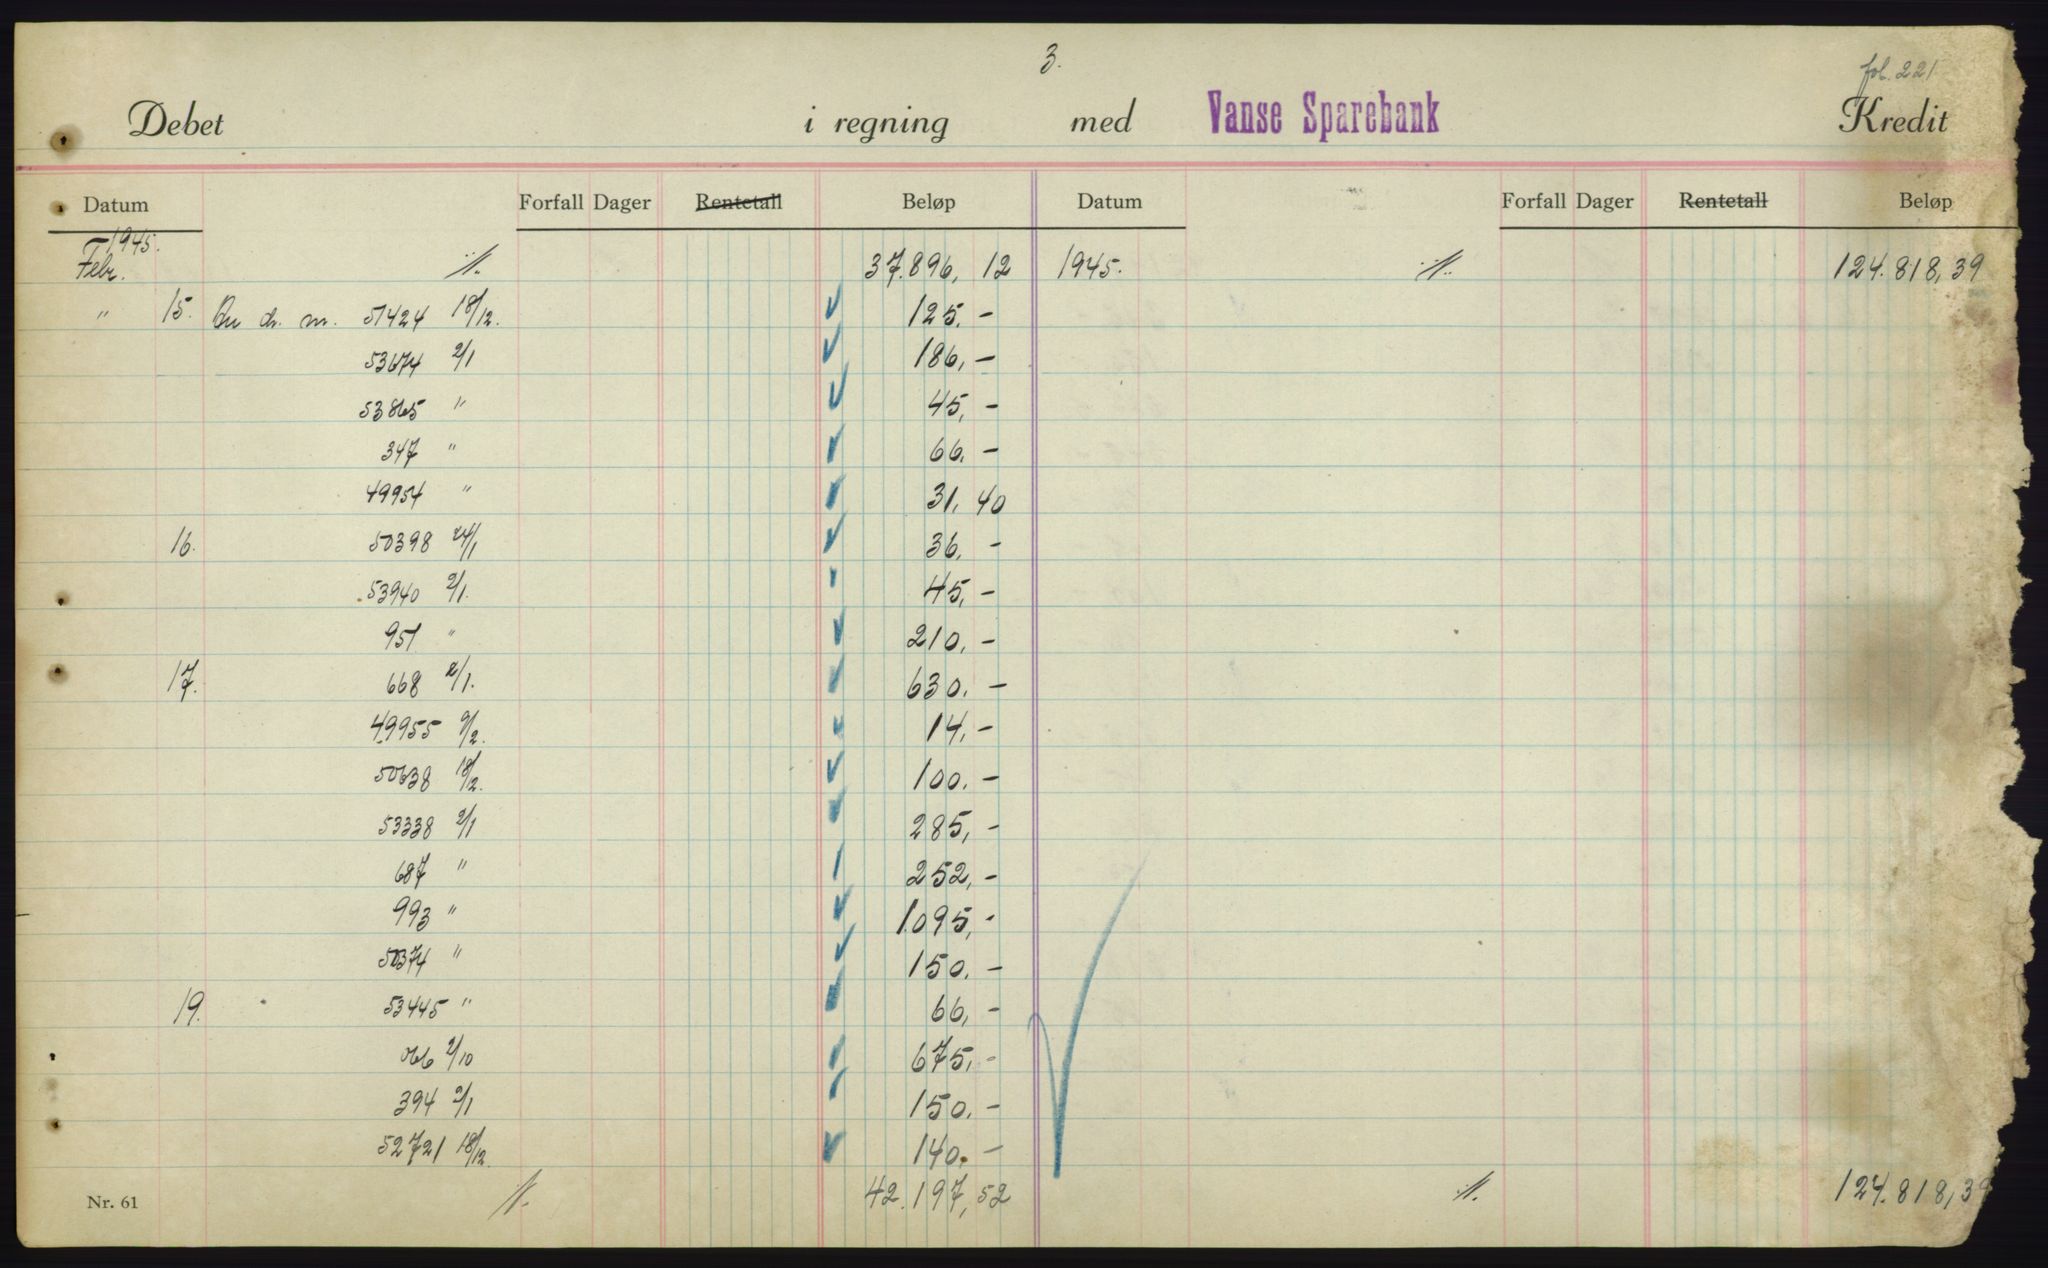 3.
fol. 221
Debet i regning med Vanse Sparebank Kredit
Datum Forfall Dager Rentetall Beløp Datum Forfall Dager Rentetall Beløp
1945.
Febr. ./. 37.896, 12 1945. ./. 124.818,39
" 15. dr. m. 51424 18/12. 125. -
53674 2/1 186, -
53865 " 45, -
347 " 66. -
49954 " 31, 40
16. 50398 24/1 36, -
53940 2/1. 45, -
951 " 210, -
17. 668 2/1. 630. -
49955 9/2. 14, -
50638 18/12. 100. -
53338 2/1 285, -
687 " 252, -
993 " 1.095, -
50374 " 150. -
19. 53445 " 66, -
066 2/10 675, -
394 2/1 150. -
52721 18/12. 140. -
Nr. 61 ./. 42.197,52 ./. 124.818,39